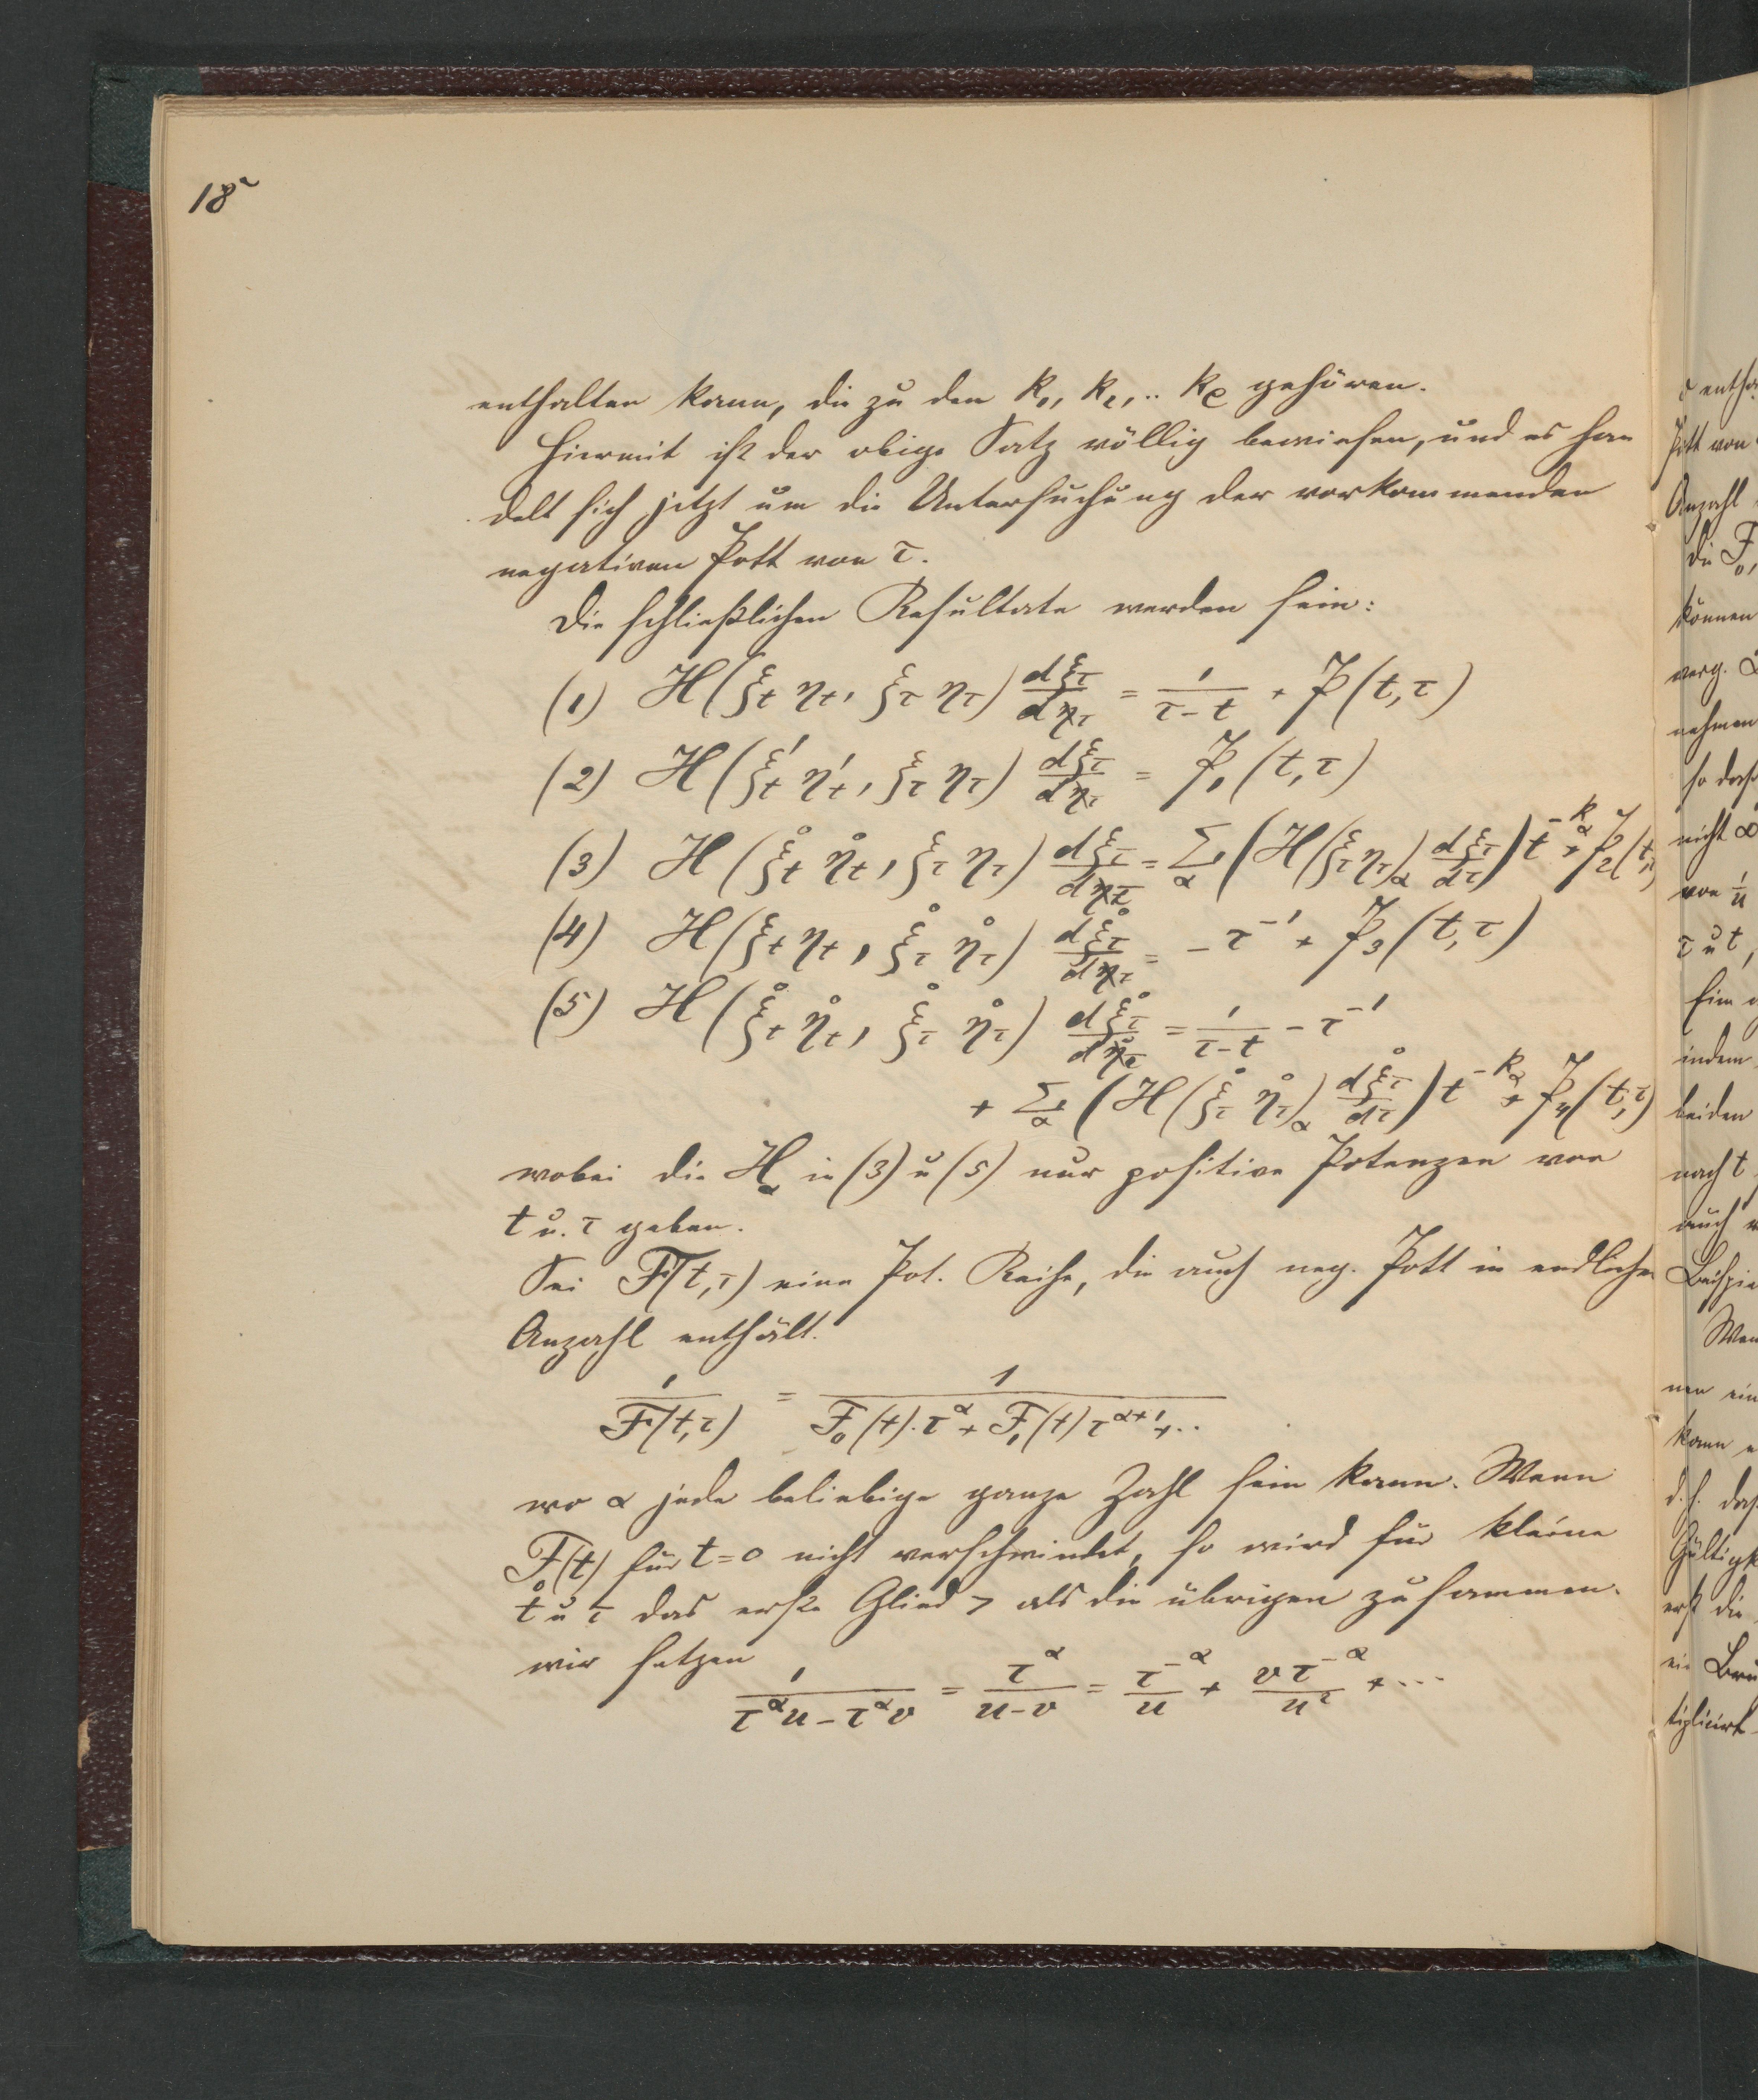 18
enthalten kann, die zu den k₁, k₂, .. kρ gehören.
Hiermit ist der obige Satz völlig bewiesen, und es han
delt sich jetzt um die Untersuchung der vorkommenden
negativen Pott von τ.
Die schließlichen Resultate werden sein:
(1) H(ξt ηt, ξτ ητ) dξτ/dητ = 1/(τ-t) + P(t,τ)
(2) H(ξ't η't, ξτ ητ) dξτ/dητ = P₁(t,τ)
(3) H(ξ̊t η̊t, ξτ ητ) dξτ/dητ = Σα (H(ξτ ητ)α dξτ/dτ) t^-kα + P₂(t,τ)
(4) H(ξt ηt, ξ̊τ η̊τ) dξ̊τ/dητ = -τ⁻¹ + P₃(t,τ)
(5) H(ξ̊t η̊t, ξ̊τ η̊τ) dξ̊τ/dη̊τ = 1/(τ-t) - τ⁻¹
+ Σα (H(ξ̊τ η̊τ)α dξ̊τ/dτ) t^-kα + P₄(t,τ)
wobei die Hα in (3) u (5) nur positive Potenzen von
t u. τ geben.
Sei F(t,τ) eine Pot. Reihe, die auch neg. Pott in endlicher
Anzahl enthält.
1/F(t,τ) = 1/(F₀(t).τ^α + F₁(t)τ^(α+1) + ..)
wo α jede beliebige ganze Zahl sein kann. Wenn
F₀(t) für t=0 nicht verschwindet, so wird für kleine
t u τ das erste Glied > als die übrigen zusammen.
wir setzen
1/(τ^α u - τ^α v) = τ^α/(u-v) = τ^-α/u + vτ^-α/u² + ...